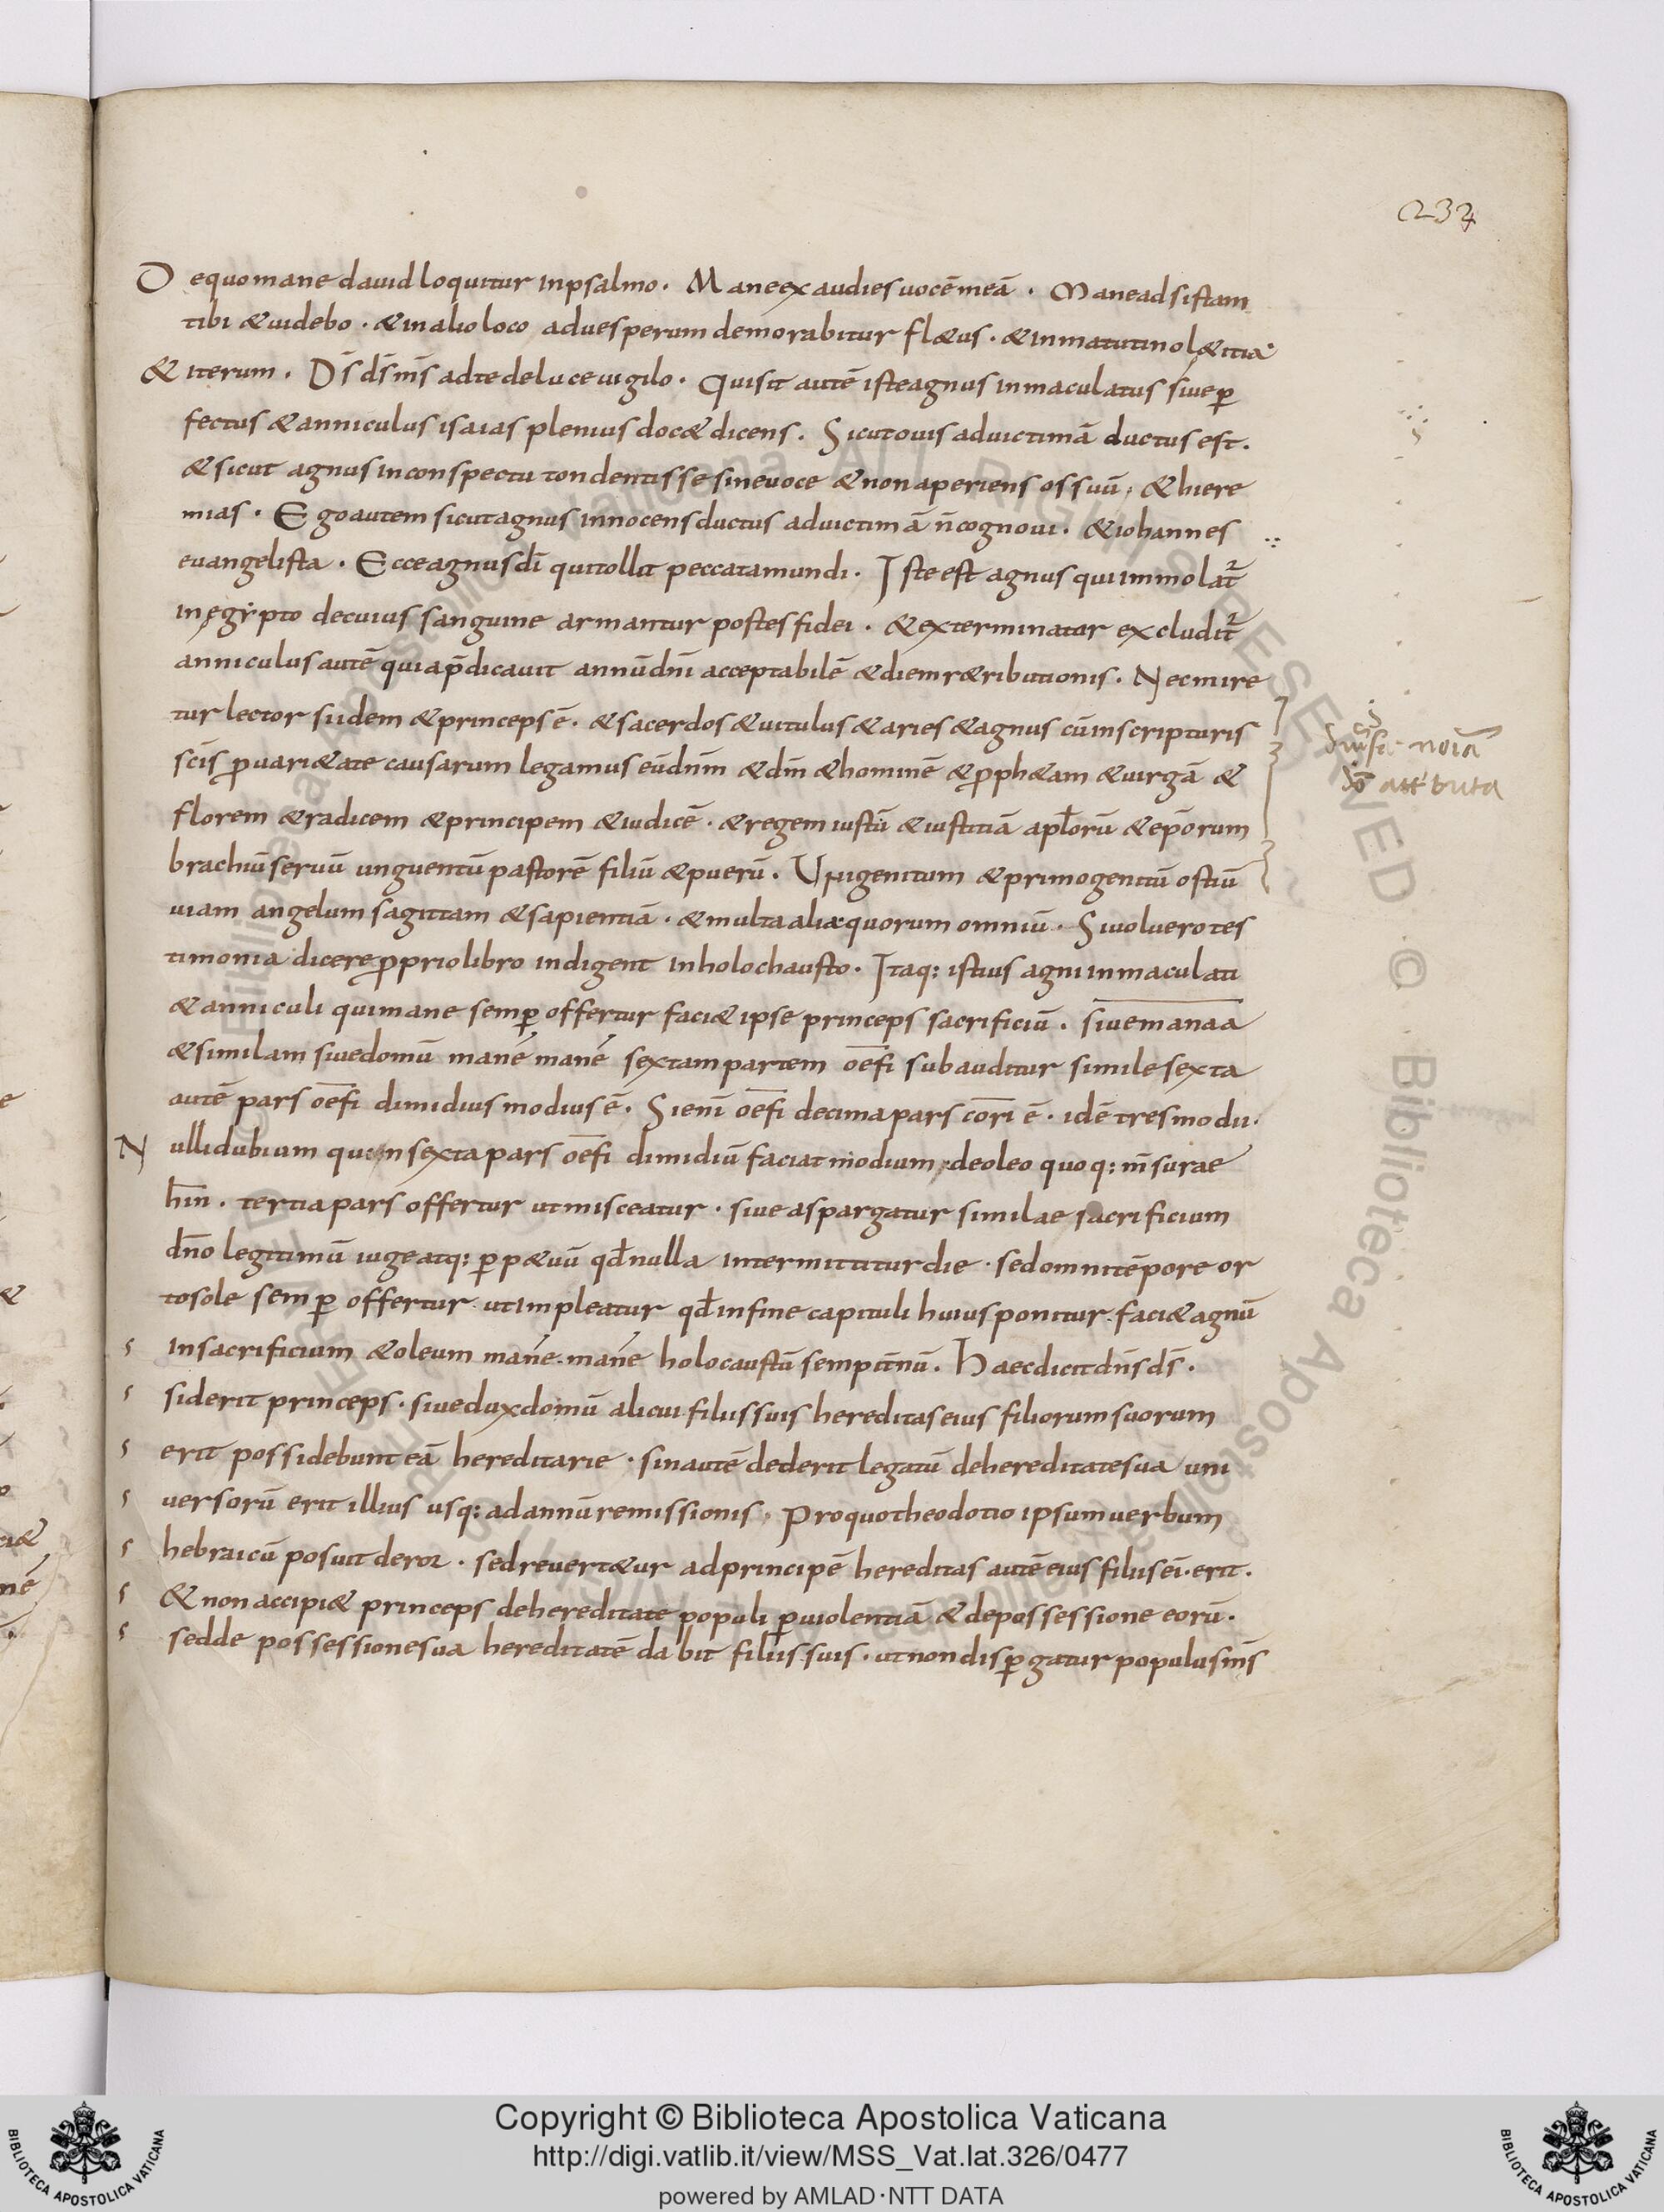 237
De quo mane dauid loquitur in psalmo. Mane exaudies uocē meā. Mane adsistam
tibi & uidebo. & in alio loco ad uesperum demorabitur fl&us. & in matutino l&itia.
& iterum. D̄s d̄s m̄s ad te de luce uigilo. Quis sit autē iste agnus inmaculatus siue ꝑ
fectus & anniculus isaias plenius doc& dicens. Sicut ouis ad uictimā ductus est.
& sicut agnus in conspectu tondentis se sine uoce & non aperiens os suū. & hiere
mias. Ego autem sicut agnus innocens ductus ad uictimā n̄ cognoui. & iohannes
euangelista. Ecce agnus dī qui tollit peccata mundi. Iste est agnus qui immolat̄
in ęgypto de cuius sanguine armantur postes fidei. & exterminator excludit̄
anniculus autē quia p̄dicauit annū dn̄i acceptabilē & diem r&ributionis. Nec mire
tur lector si idem & princeps ē. & sacerdos & uitulus & aries & agnus cū in scripturis
sc̄is ꝓ uari&ate causarum legamus eūd n̄m & dm̄ & hominē & ꝓph&am & uirgā &
florem & radicem & principem & iudicē. & regem iustū & iustitiā apl̄orū & ep̄orum
brachiū seruū unguentū pastorē filiū & puerū. Unigenitum & primogenitū ostiū
uiam angelum sagittam & sapientiā. & multa alia quorum omniū. Si uoluero tes
timonia dicere ꝓprio libro indigent in holochausto. Itaq: istius agni inmaculati
& anniculi qui mane semꝑ offertur faci& ipse princeps sacrificiū. siue manaa
& similam siue domū mane mane sextam partem oefi subauditur simile sexta
autē pars oefi dimidius modius ē. Si enī oefi decima pars cori ē. idē tres modii.
Nulli dubium quin sexta pars oefi dimidiū faciat modium. de oleo quoq: m̄surae
hin. tertia pars offertur ut misceatur. siue aspargatur similae sacrificium
dn̄o legitimū iuge atq: ꝑp&uū qd̄ nulla intermittitur die. sed omni tēpore or
to sole semꝑ offertur. ut impleatur qd̄ in fine capituli huius ponitur. faci& agnū
in sacrificium & oleum mane. mane holocaustū sempit̄nū. Haec dicit dn̄s d̄s.
si derit princeps. siue dux domū alicui filiis suis hereditas eius filiorum suorum
erit possidebunt eā hereditarie. sin autē dederit legatū de hereditate sua uni
uersorū erit illius usq: ad annū remissionis. Pro quo theodotio ipsum uerbum
hebraicū posuit deror. sed reuert&ur ad principē hereditas autē eius filiis ei. erit.
& non accipi& princeps de hereditate populi ꝑ uiolentiā & de possessione eorū.
sed de possessione sua hereditatē dabit filiis suis. ut non disꝑgatur populus m̄s
Copyright © Biblioteca Apostolica Vaticana
http://digi.vatlib.it/view/MSS_Vat.lat.326/0477
powered by AMLAD·NTT DATA
BIBLIOTECA APOSTOLICA VATICANA
BIBLIOTECA APOSTOLICA VATICANA